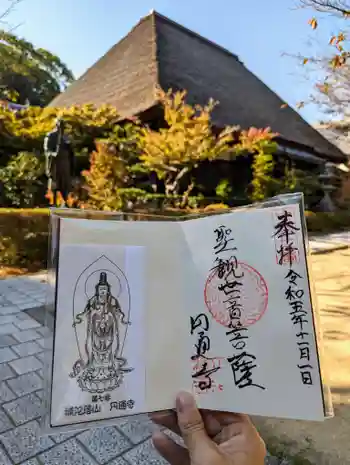 奉拝
令和五年十一月一日
聖観世音菩薩
円通寺
第七番
円通寺